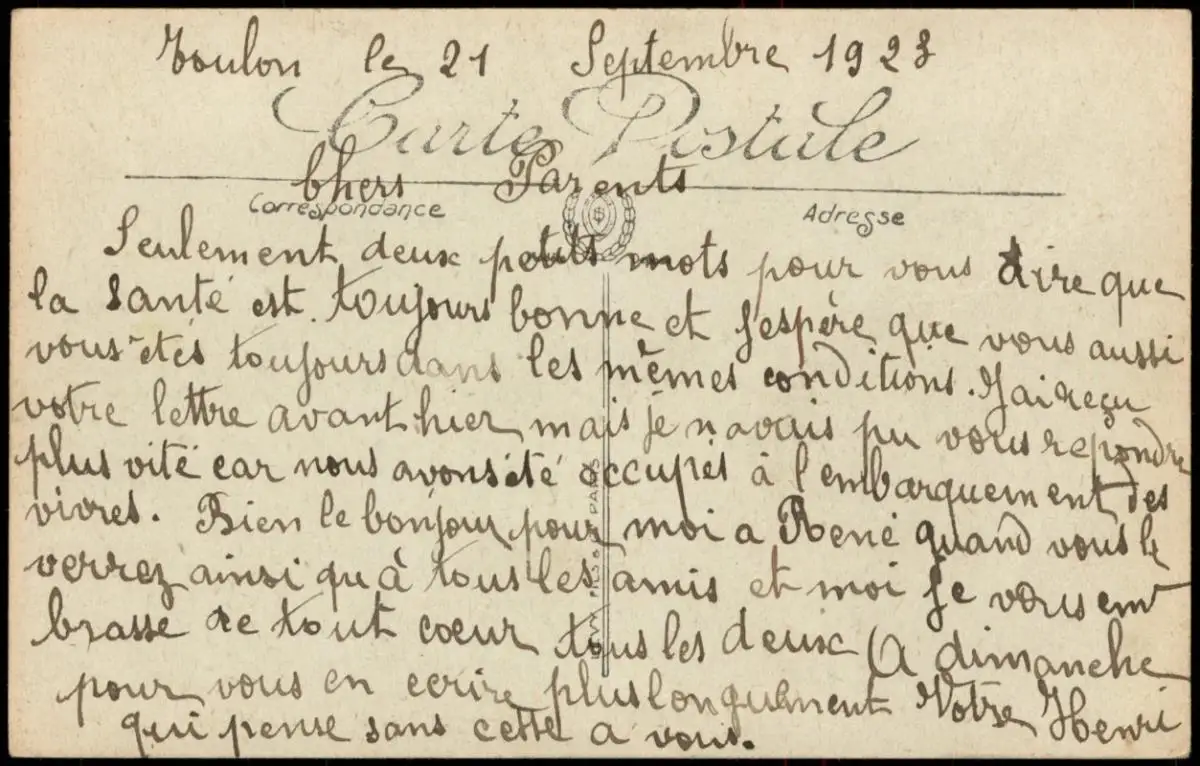 Toulon le 21 Septembre 1923
Carte Postale
Chers Parents
Correspondance
Adresse
Seulement deux petits mots pour vous dire que
la santé est toujours bonne et j'espère que vous aussi
vous êtes toujours dans les mêmes conditions. J'ai reçu
votre lettre avant hier mais je n'avais pu vous repondre
plus vité car nous avons été occupés à l'embarquement des
vivres. Bien le bonjour pour moi a René quand vous le
verrez ainsi qu'à tous les amis et moi je vous em
brasse de tout coeur tous les deux (A dimanche
pour vous en ecrire plus longuement Votre Henri
qui pense sans cette a vous.
PARIS